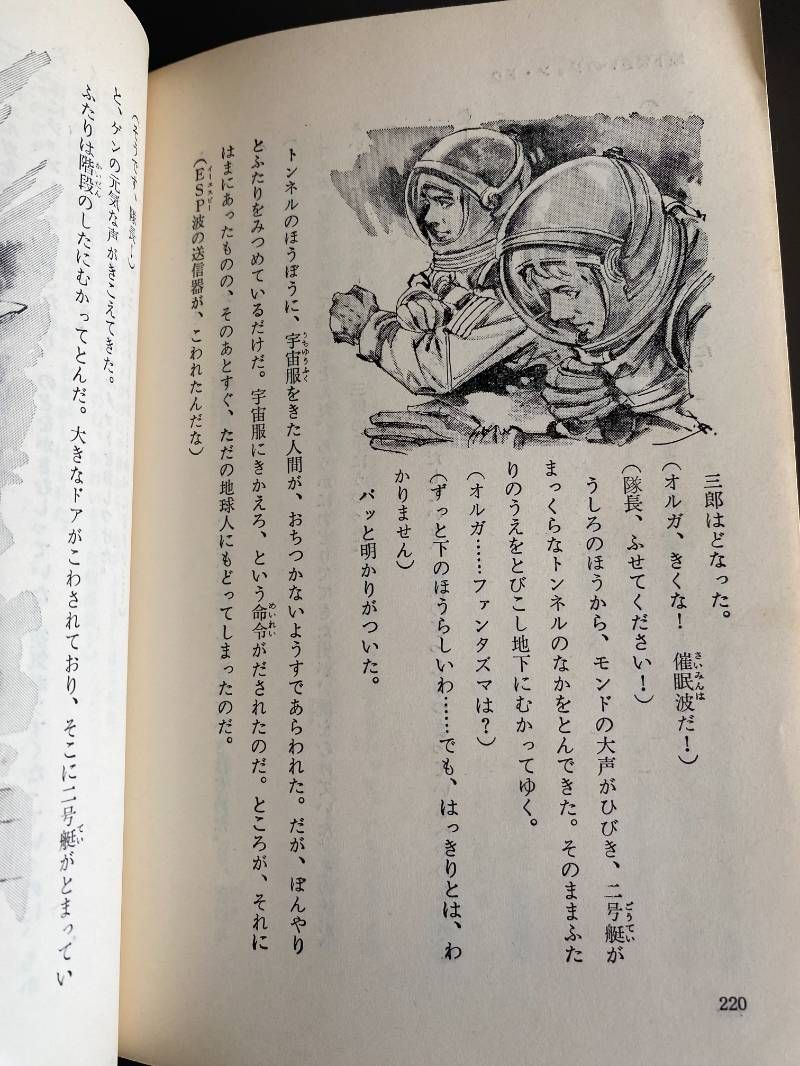 三郎はどなった。
(オルガ、きくな! 催眠波だ!)
(隊長、ふせてください!)
うしろのほうから、モンドの大声がひびき、二号艇が
まっくらなトンネルのなかをとんできた。そのままふた
りのうえをとびこし地下にむかってゆく。
(オルガ……ファンタズマは?)
(ずっと下のほうらしいわ……でも、はっきりとは、わ
かりません)
パッと明かりがついた。
トンネルのほうぼうに、宇宙服をきた人間が、おちつかないようすであらわれた。だが、ぼんやり
とふたりをみつめているだけだ。宇宙服にきかえろ、という命令がだされたのだ。ところが、それに
はまにあったものの、そのあとすぐ、ただの地球人にもどってしまったのだ。
(ESP波の送信器が、こわれたんだな)
(そうです、隊長!)
と、ゲンの元気な声がきこえてきた。
ふたりは階段のしたにむかってとんだ。大きなドアがこわされており、そこに二号艇がとまってい
220